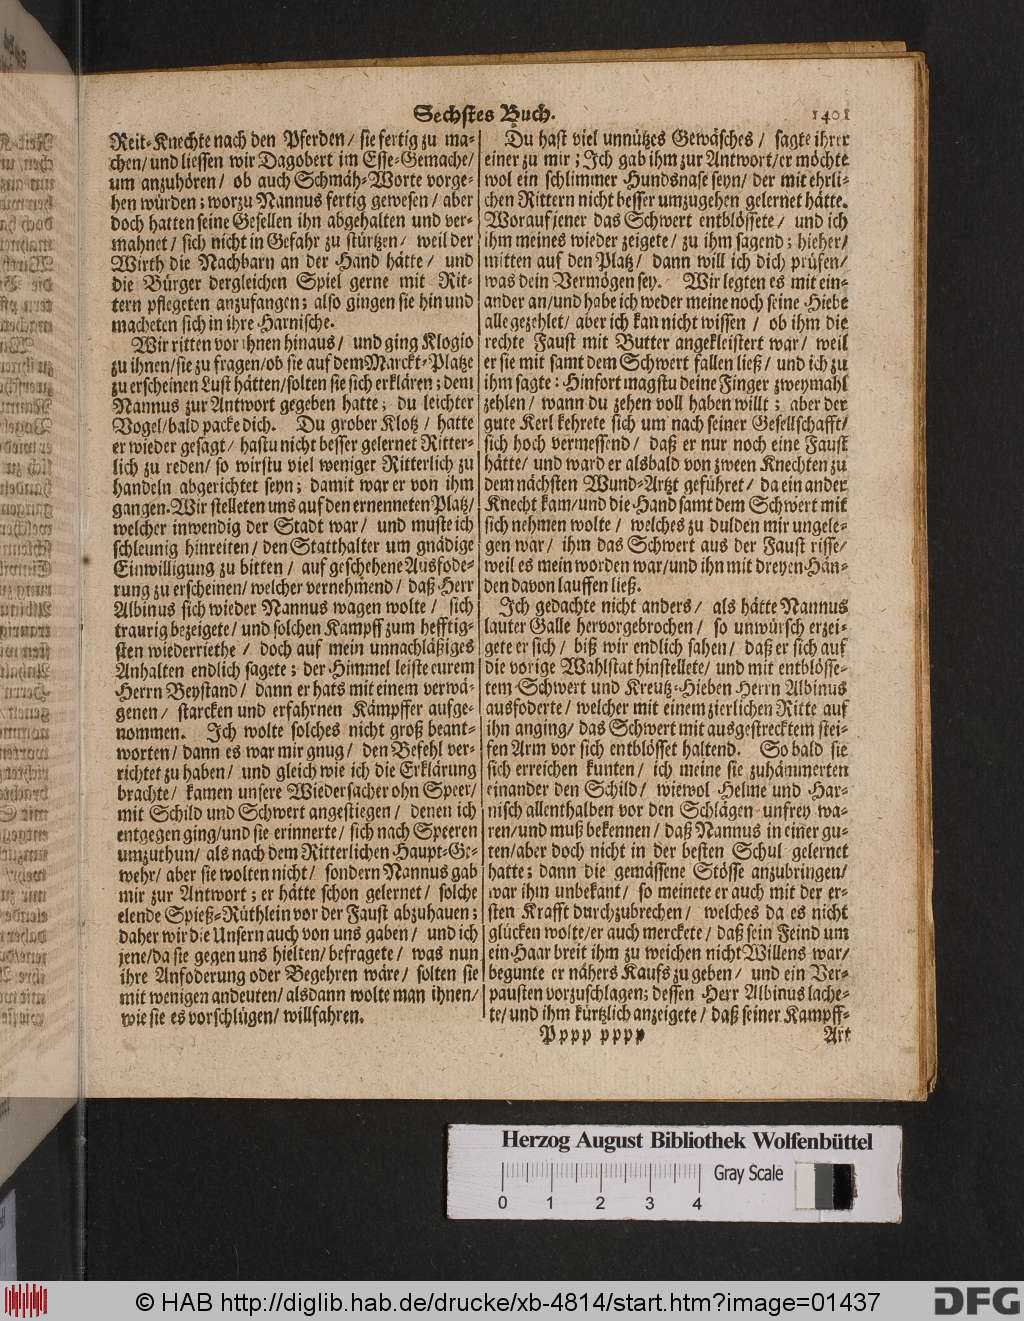 Sechstes Buch.
1401
Reit-Knechte nach den Pferden/ sie fertig zu ma-
chen/ und liessen wir Dagobert im Esse-Gemache/
um anzuhören/ ob auch Schmäh-Worte vorge-
hen würden; worzu Nannus fertig gewesen/ aber
doch hatten seine Gesellen ihn abgehalten und ver-
mahnet/ sich nicht in Gefahr zu stürtzen/ weil der
Wirth die Nachbarn an der Hand hätte/ und
die Bürger dergleichen Spiel gerne mit Rit-
tern pflegeten anzufangen; also gingen sie hin und
macheten sich in ihre Harnische.
Wir ritten vor ihnen hinaus/ und ging Klogio
zu ihnen/ sie zu fragen/ ob sie auf dem Marckt-Platze
zu erscheinen Lust hätten/ solten sie sich erklären; dem
Nannus zur Antwort gegeben hatte; du leichter
Vogel/ bald packe dich. Du grober Klotz/ hatte
er wieder gesagt/ hastu nicht besser gelernet Ritter-
lich zu reden/ so wirstu viel weniger Ritterlich zu
handeln abgerichtet seyn; damit war er von ihm
gangen. Wir stelleten uns auf den ernenneten Platz/
welcher inwendig der Stadt war/ und muste ich
schleunig hinreiten/ den Statthalter um gnädige
Einwilligung zu bitten/ auf geschehene Ausfode-
rung zu erscheinen/ welcher vernehmend/ daß Herr
Albinus sich wieder Nannus wagen wolte/ sich
traurig bezeigete/ und solchen Kampff zum hefftig-
sten wiederriethe/ doch auf mein unnachläßiges
Anhalten endlich sagete; der Himmel leiste eurem
Herrn Beystand/ dann er hats mit einem verwä-
genen/ starcken und erfahrnen Kämpffer aufge-
nommen. Ich wolte solches nicht groß beant-
worten/ dann es war mir gnug/ den Befehl ver-
richtet zu haben/ und gleich wie ich die Erklärung
brachte/ kamen unsere Wiedersacher ohn Speer/
mit Schild und Schwert angestiegen/ denen ich
entgegen ging/ und sie erinnerte/ sich nach Speeren
umzuthun/ als nach dem Ritterlichen Haupt-Ge-
wehr/ aber sie wolten nicht/ sondern Nannus gab
mir zur Antwort; er hätte schon gelernet/ solche
elende Spieß-Rüthlein vor der Faust abzuhauen;
daher wir die Unsern auch von uns gaben/ und ich
jene/ da sie gegen uns hielten/ befragete/ was nun
ihre Anfoderung oder Begehren wäre/ solten sie
mit wenigen andeuten/ alsdann wolte man ihnen/
wie sie es vorschlügen/ willfahren.
Du hast viel unnützes Gewäsches/ sagte ihrer
einer zu mir; Ich gab ihm zur Antwort/ er möchte
wol ein schlimmer Hundsnase seyn/ der mit ehrli-
chen Rittern nicht besser umzugehen gelernet hätte.
Worauf jener das Schwert entblössete/ und ich
ihm meines wieder zeigete/ zu ihm sagend; hieher/
mitten auf den Platz/ dann will ich dich prüfen/
was dein Vermögen sey. Wir legten es mit ein-
ander an/ und habe ich weder meine noch seine Hiebe
alle gezehlet/ aber ich kan nicht wissen/ ob ihm die
rechte Faust mit Butter angekleistert war/ weil
er sie mit samt dem Schwert fallen ließ/ und ich zu
ihm sagte: Hinfort magstu deine Finger zweymahl
zehlen/ wann du zehen voll haben willt; aber der
gute Kerl kehrete sich um nach seiner Gesellschafft/
sich hoch vermessend/ daß er nur noch eine Faust
hätte/ und ward er alsbald von zween Knechten zu
dem nächsten Wund-Artzt geführet/ da ein ander
Knecht kam/ und die Hand samt dem Schwert mit
sich nehmen wolte/ welches zu dulden mir ungele-
gen war/ ihm das Schwert aus der Faust risse/
weil es mein worden war/ und ihn mit dreyen Hän-
den davon lauffen ließ.
Ich gedachte nicht anders/ als hätte Nannus
lauter Galle hervorgebrochen/ so unwürsch erzei-
gete er sich/ biß wir endlich sahen/ daß er sich auf
die vorige Wahlstat hinstellete/ und mit entblösse-
tem Schwert und Kreutz-Hieben Herrn Albinus
ausfoderte/ welcher mit einem zierlichen Ritte auf
ihn anging/ das Schwert mit ausgestrecktem stei-
fen Arm vor sich entblösset haltend. So bald sie
sich erreichen kunten/ ich meine sie zuhämmerten
einander den Schild/ wiewol Helme und Har-
nisch allenthalben vor den Schlägen unfrey wa-
ren/ und muß bekennen/ daß Nannus in einer gu-
ten/ aber doch nicht in der besten Schul gelernet
hatte; dann die gemässene Stösse anzubringen/
war ihm unbekant/ so meinete er auch mit der er-
sten Krafft durchzubrechen/ welches da es nicht
glücken wolte/ er auch merckete/ daß sein Feind um
ein Haar breit ihm zu weichen nicht Willens war/
begunte er nähers Kaufs zu geben/ und ein Ver-
pausten vorzuschlagen; dessen Herr Albinus lache-
te/ und ihm kürtzlich anzeigete/ daß seiner Kampff-
Pppp pppp
Art
Herzog August Bibliothek Wolfenbüttel
Gray Scale
0 1 2 3 4
© HAB http://diglib.hab.de/drucke/xb-4814/start.htm?image=01437
DFG